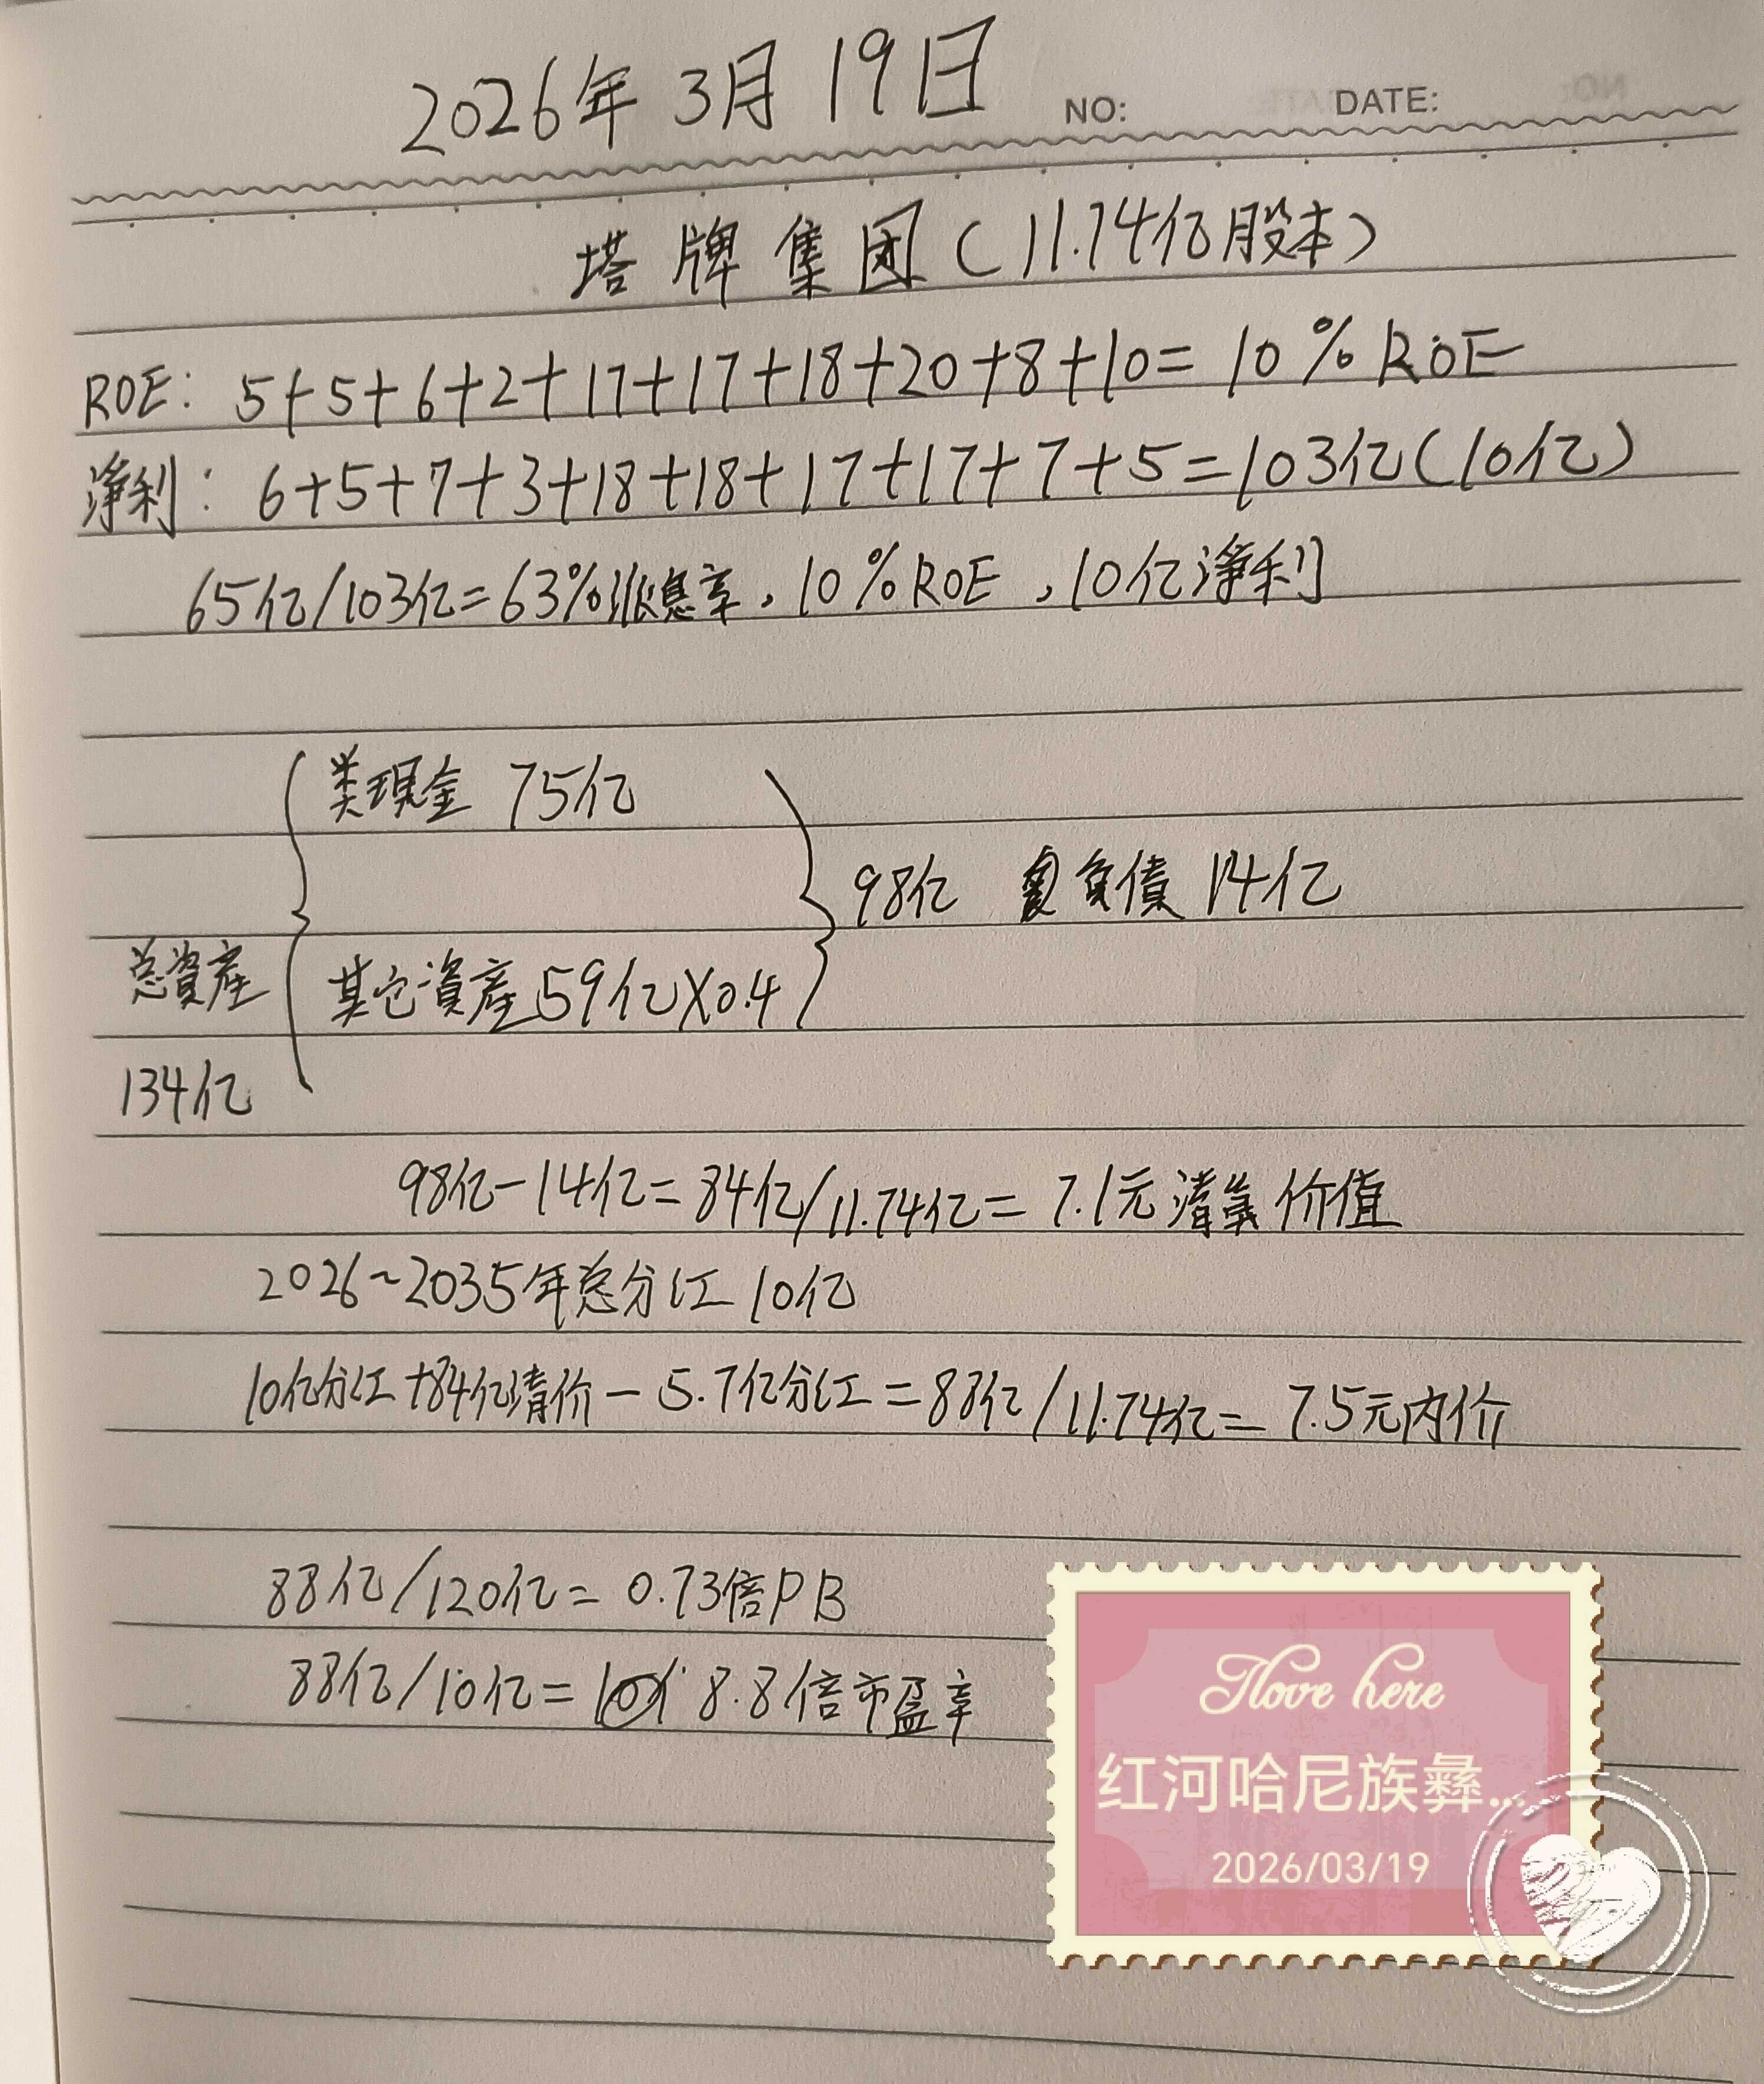 2026年3月19日
NO: DATE:
塔牌集团(11.74亿股本)
ROE: 5+5+6+2+17+17+18+20+8+10=10%ROE
净利: 6+5+7+3+18+18+17+17+7+5=103亿(10亿)
65亿/103亿=63%派息率,10%ROE,10亿净利
类現金 75亿
98亿 負債 14亿
总資産 其它資産59亿X0.4
134亿
98亿-14亿=84亿/11.74亿=7.1元清算价值
2026~2035年总分红10亿
10亿分红+84亿清价-5.7亿分红=88亿/11.74亿=7.5元内价
88亿/120亿=0.73倍PB
88亿/10亿= 8.8倍市盈率
I love here
红河哈尼族彝...
2026/03/19